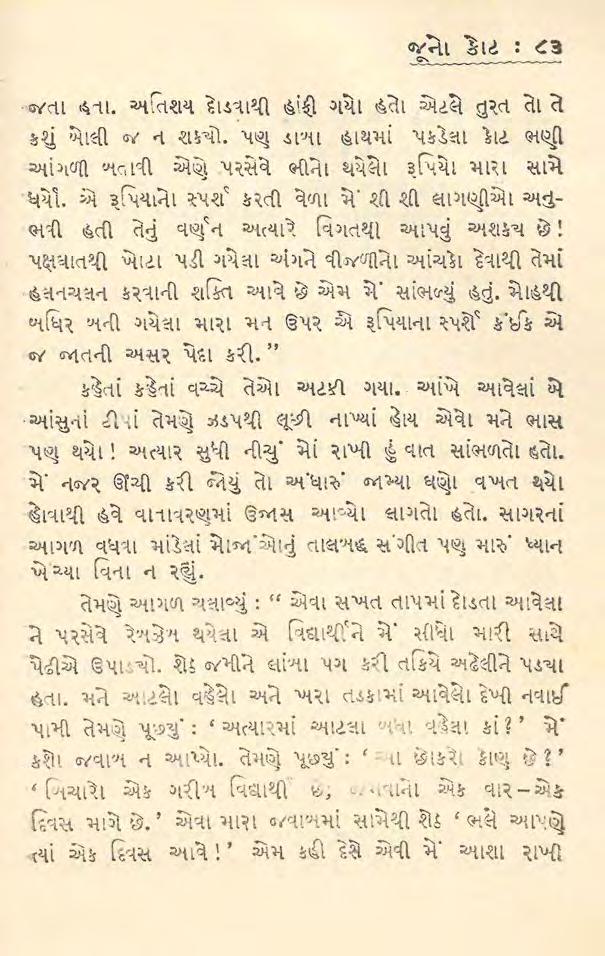 જૂનો કોટ : ૮૩
જતા હતા. અતિશય દોડવાથી હાંફી ગયો હતો એટલે તુરત તો તે
કશું બોલી જ ન શકયો. પણ ડાબા હાથમાં પકડેલા કોટ ભણી
આંગળી બતાવી એણે પરસેવે ભીનો થયેલો રૂપિયો મારા સામે
ધર્યો. એ રૂપિયાનો સ્પર્શ કરતી વેળા મેં શી શી લાગણીઓ અનુ-
ભવી હતી તેનું વર્ણન અત્યારે વિગતથી આપવું અશકય છે!
પક્ષઘાતથી ખોટા પડી ગયેલા અંગને વીજળીનો આંચકો દેવાથી તેમાં
હલનચલન કરવાની શક્તિ આવે છે એમ મેં સાંભળ્યું હતું. મોહથી
બધિર બની ગયેલા મારા મન ઉપર એ રૂપિયાના સ્પર્શે કંઈક એ
જ જાતની અસર પેદા કરી.”
કહેતાં કહેતાં વચ્ચે તેઓ અટકી ગયા. આંખે આવેલાં બે
આંસુનાં ટીપાં તેમણે ઝડપથી લૂછી નાખ્યાં હોય એવો મને ભાસ
પણ થયો! અત્યાર સુધી નીચું મોં રાખી હું વાત સાંભળતો હતો.
મેં નજર ઊંચી કરી જોયું તો અંધારું જામ્યા ઘણો વખત થયો
હોવાથી હવે વાતાવરણમાં ઉજાસ આવ્યો લાગતો હતો. સાગરનાં
આગળ વધવા માંડેલાં મોજાંઓનું તાલબદ્ધ સંગીત પણ મારું ધ્યાન
ખેંચ્યા વિના ન રહ્યું.
તેમણે આગળ ચલાવ્યું : “ એવા સખત તાપમાં દોડતા આવેલા
ને પરસેવે રેબઝેબ થયેલા એ વિદ્યાર્થીને મેં સીધો મારી સાથે
પેઢીએ ઉપાડયો. શેઠ જમીને લાંબા પગ કરી તકિયે અઢેલીને પડયા
હતા. મને આટલો વહેલો અને ખરા તડકામાં આવેલો દેખી નવાઈ
પામી તેમણે પૂછયું : ‘ અત્યારમાં આટલા બધા વહેલા કાં?’ મેં
કશો જવાબ ન આપ્યો. તેમણે પૂછયું : ‘ આ છોકરો કોણ છે?’
‘ બિચારો એક ગરીબ વિદ્યાર્થી છે; જમવાનો એક વાર–એક
દિવસ માગે છે.’ એવા મારા જવાબમાં સામેથી શેઠ ‘ ભલે આપણે
ત્યાં એક દિવસ આવે!’ એમ કહી દેશે એવી મેં આશા રાખી